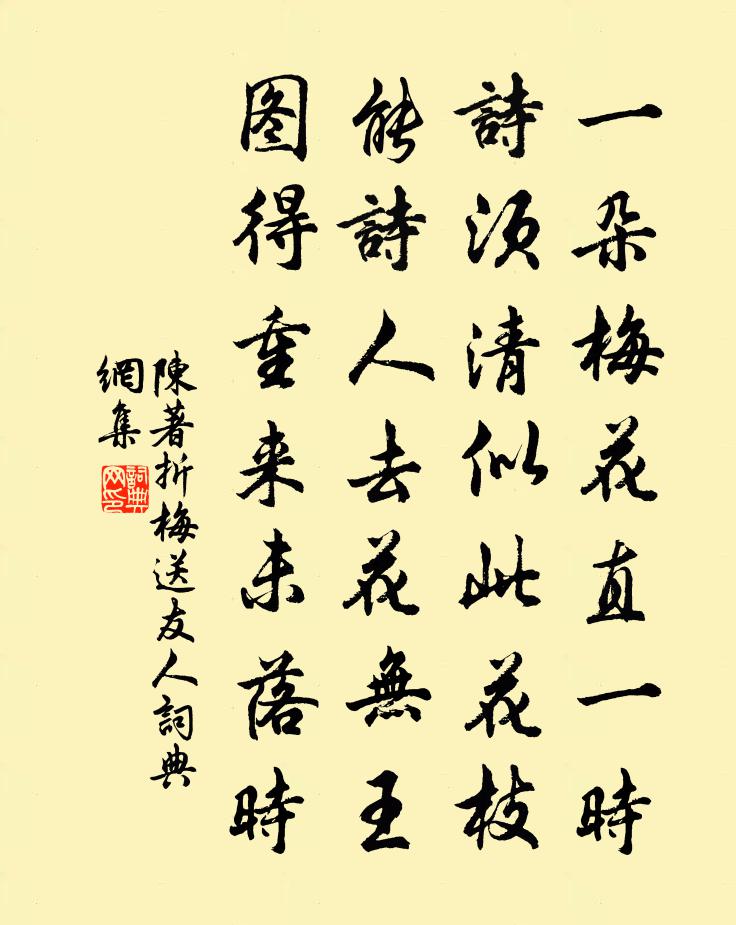 一朵梅花直一時
詩須清似此花枝
能詩人去花無王
图得重来未落時
陳著折梅送友人詞典
網集
詞典
网印